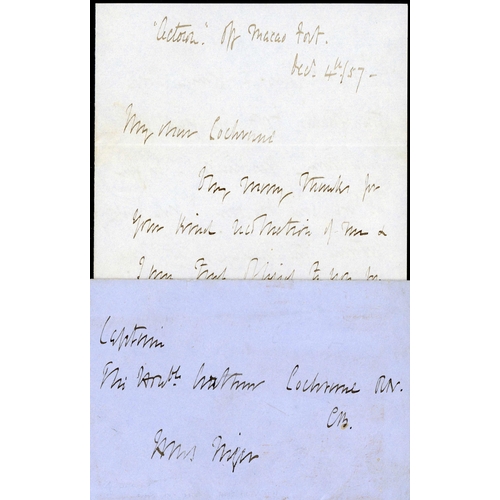 "Actaeon". Off Macao Fort.
Dec. 4th/57 -
My dear Cochrane
Very many thanks for
your kind recollection of me &
I am much obliged to you for
Captain
The Honble Arthur Cochrane RN.
CB.
HMS Niger